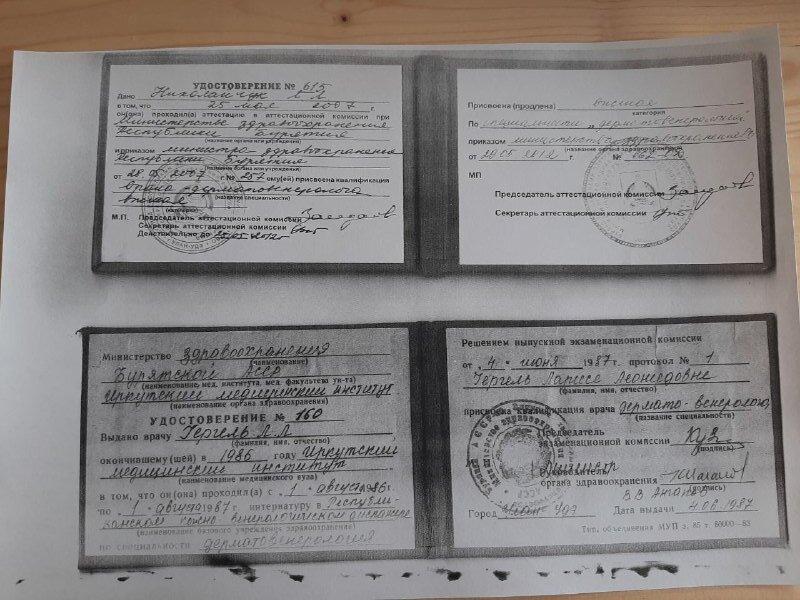 УДОСТОВЕРЕНИЕ № 615
Дано Николайчук Л Л
в том, что 25 мая 2007 г.
он(она) проходил(а) аттестацию в аттестационной комиссии при
Министерстве здравоохранения
Республики Бурятия
(название органа или учреждения)
и приказом министра здравоохранения
Республики Бурятия
(название органа или учреждения)
от 28.05 2007 г. № 257 ому(ей) присвоена квалификация
врача дерматовенеролога
(название специальности)
высшая
(категория)
М.П. Председатель аттестационной комиссии
Секретарь аттестационной комиссии
Действительно до 25/05 2012г
Присвоена (продлена) высшая
категория
По специальности „дерматовенерология"
приказом министерство здравоохранения РБ
(название органа здравоохранения)
от 29.05 2012 №
МП
Председатель аттестационной комиссии
Секретарь аттестационной комиссии
Министерство здравоохранения
(наименование)
Бурятской АССР
(наименование мед. института, мед. факультета ун-та)
Иркутский медицинский институт
(наименование органа здравоохранения)
УДОСТОВЕРЕНИЕ № 160
Выдано врачу Гергель Л.Л.
(фамилия, имя, отчество)
окончившему(шей) в 1986 году Иркутский
медицинский институт
(наименование медицинского вуза)
в том, что он(она) проходил(а) с 1 августа 1986 г.
по 1 августа 1987 г. интернатуру в Республи-
канском кожно-венерологическом диспансере
(наименование базового учреждения здравоохранения)
по специальности дерматовенерология
Решением выпускной экзаменационной комиссии
от 4 июня 1987 г. протокол № 1
Гергель Ларисе Леонидовне
(фамилия, имя, отчество)
присвоена квалификация врача дермато-венеролога
(название специальности)
Председатель
экзаменационной комиссии
(подпись)
Руководитель Министр
органа здравоохранения
(подпись)
Город Улан-Удэ Дата выдачи 4.06.1987
Тип. объединения МУП з. 85 т. 60000—83